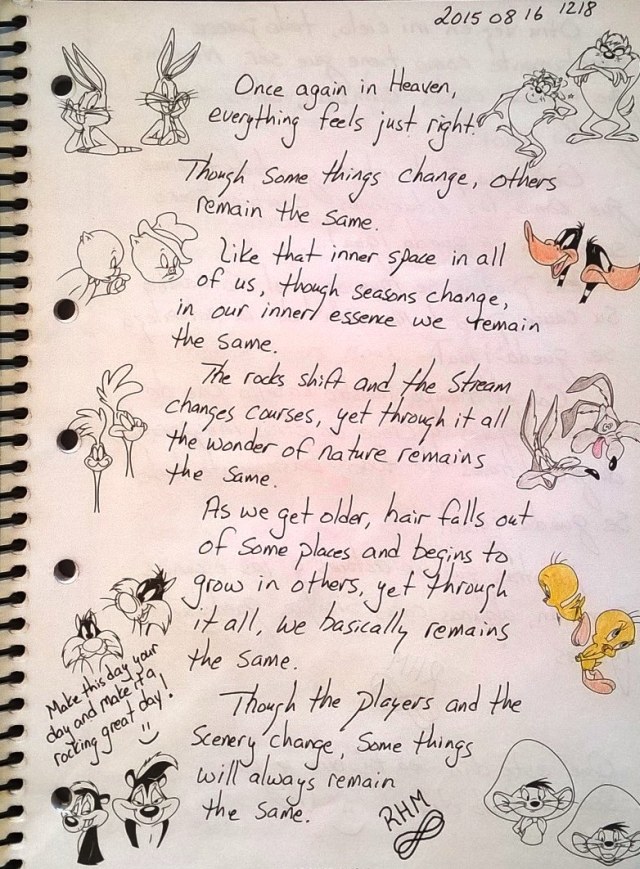 2015 08 16 1218
Once again in Heaven,
everything feels just right!
Though some things change, others
remain the same.
Like that inner space in all
of us, though seasons change,
in our inner essence we remain
the same.
The rocks shift and the stream
changes courses, yet through it all
the wonder of nature remains
the same.
As we get older, hair falls out
of some places and begins to
grow in others, yet through
it all, we basically remains
the same.
Make this day your
day and make it a
rocking great day!
Though the players and the
scenery change, some things
will always remain
the same.
RHM